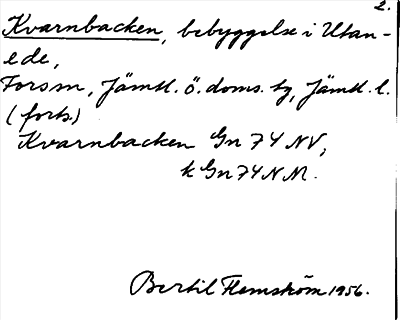 2.
Kvarnbacken, bebyggelse i Utan-
ede,
Forsm, Jämtl. ö. doms. tg, Jämtl. l.
(forts.)
Kvarnbacken Gn 74 NV,
k Gn 74 N M.
Bertil Flemström 1956.